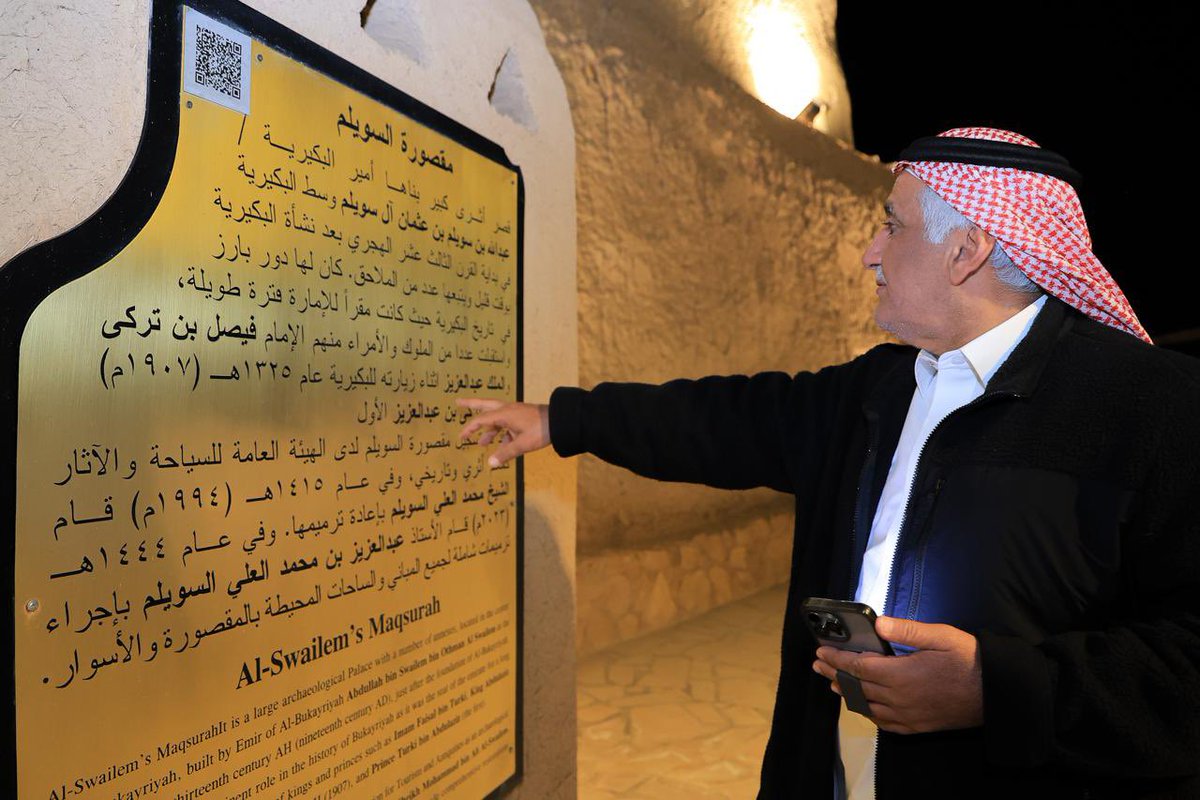 مقصورة السويلم
قصر أثري كبير بناها أمير البكيرية /
عبدالله بن سويلم بن عثمان آل سويلم وسط البكيرية
في بداية القرن الثالث عشر الهجري بعد نشأة البكيرية
بوقت قليل ويتبعها عدد من الملاحق. كان لها دور بارز
في تاريخ البكيرية حيث كانت مقراً للإمارة فترة طويلة،
واستقبلت عددا من الملوك والأمراء منهم الإمام فيصل بن تركي
والملك عبدالعزيز اثناء زيارته للبكيرية عام ١٣٢٥هـ (١٩٠٧م)
بن عبدالعزيز الأول
مقصورة السويلم لدى الهيئة العامة للسياحة والآثار
أثري وتاريخي، وفي عام ١٤١٥هـ (١٩٩٤م) قام
الشيخ محمد العلي السويلم بإعادة ترميمها. وفي عام ١٤٤٤هـ
(٢٠٢٣م) قام الأستاذ عبدالعزيز بن محمد العلي السويلم بإجراء
ترميمات شاملة لجميع المباني والساحات المحيطة بالمقصورة والأسوار.
Al-Swailem's Maqsurah
Al-Swailem's MaqsurahIt is a large archaeological Palace with a number of annexes, located in the centre
Bukayriyah, built by Emir of Al-Bukayriyah Abdullah bin Swailem bin Othman Al Swailem at the
thirteenth century AH (nineteenth century AD), just after the foundation of Al-Bukayriyah
role in the history of Bukayriyah as it was the seat of the emirate for a long
of kings and princes such as Imam Faisal bin Turki, King Abdulaziz
(1907), and Prince Turki bin Abdulaziz (the first).
for Tourism and Antiquities as an archaeological
Sheikh Mohammad bin Ali Al-Swailem